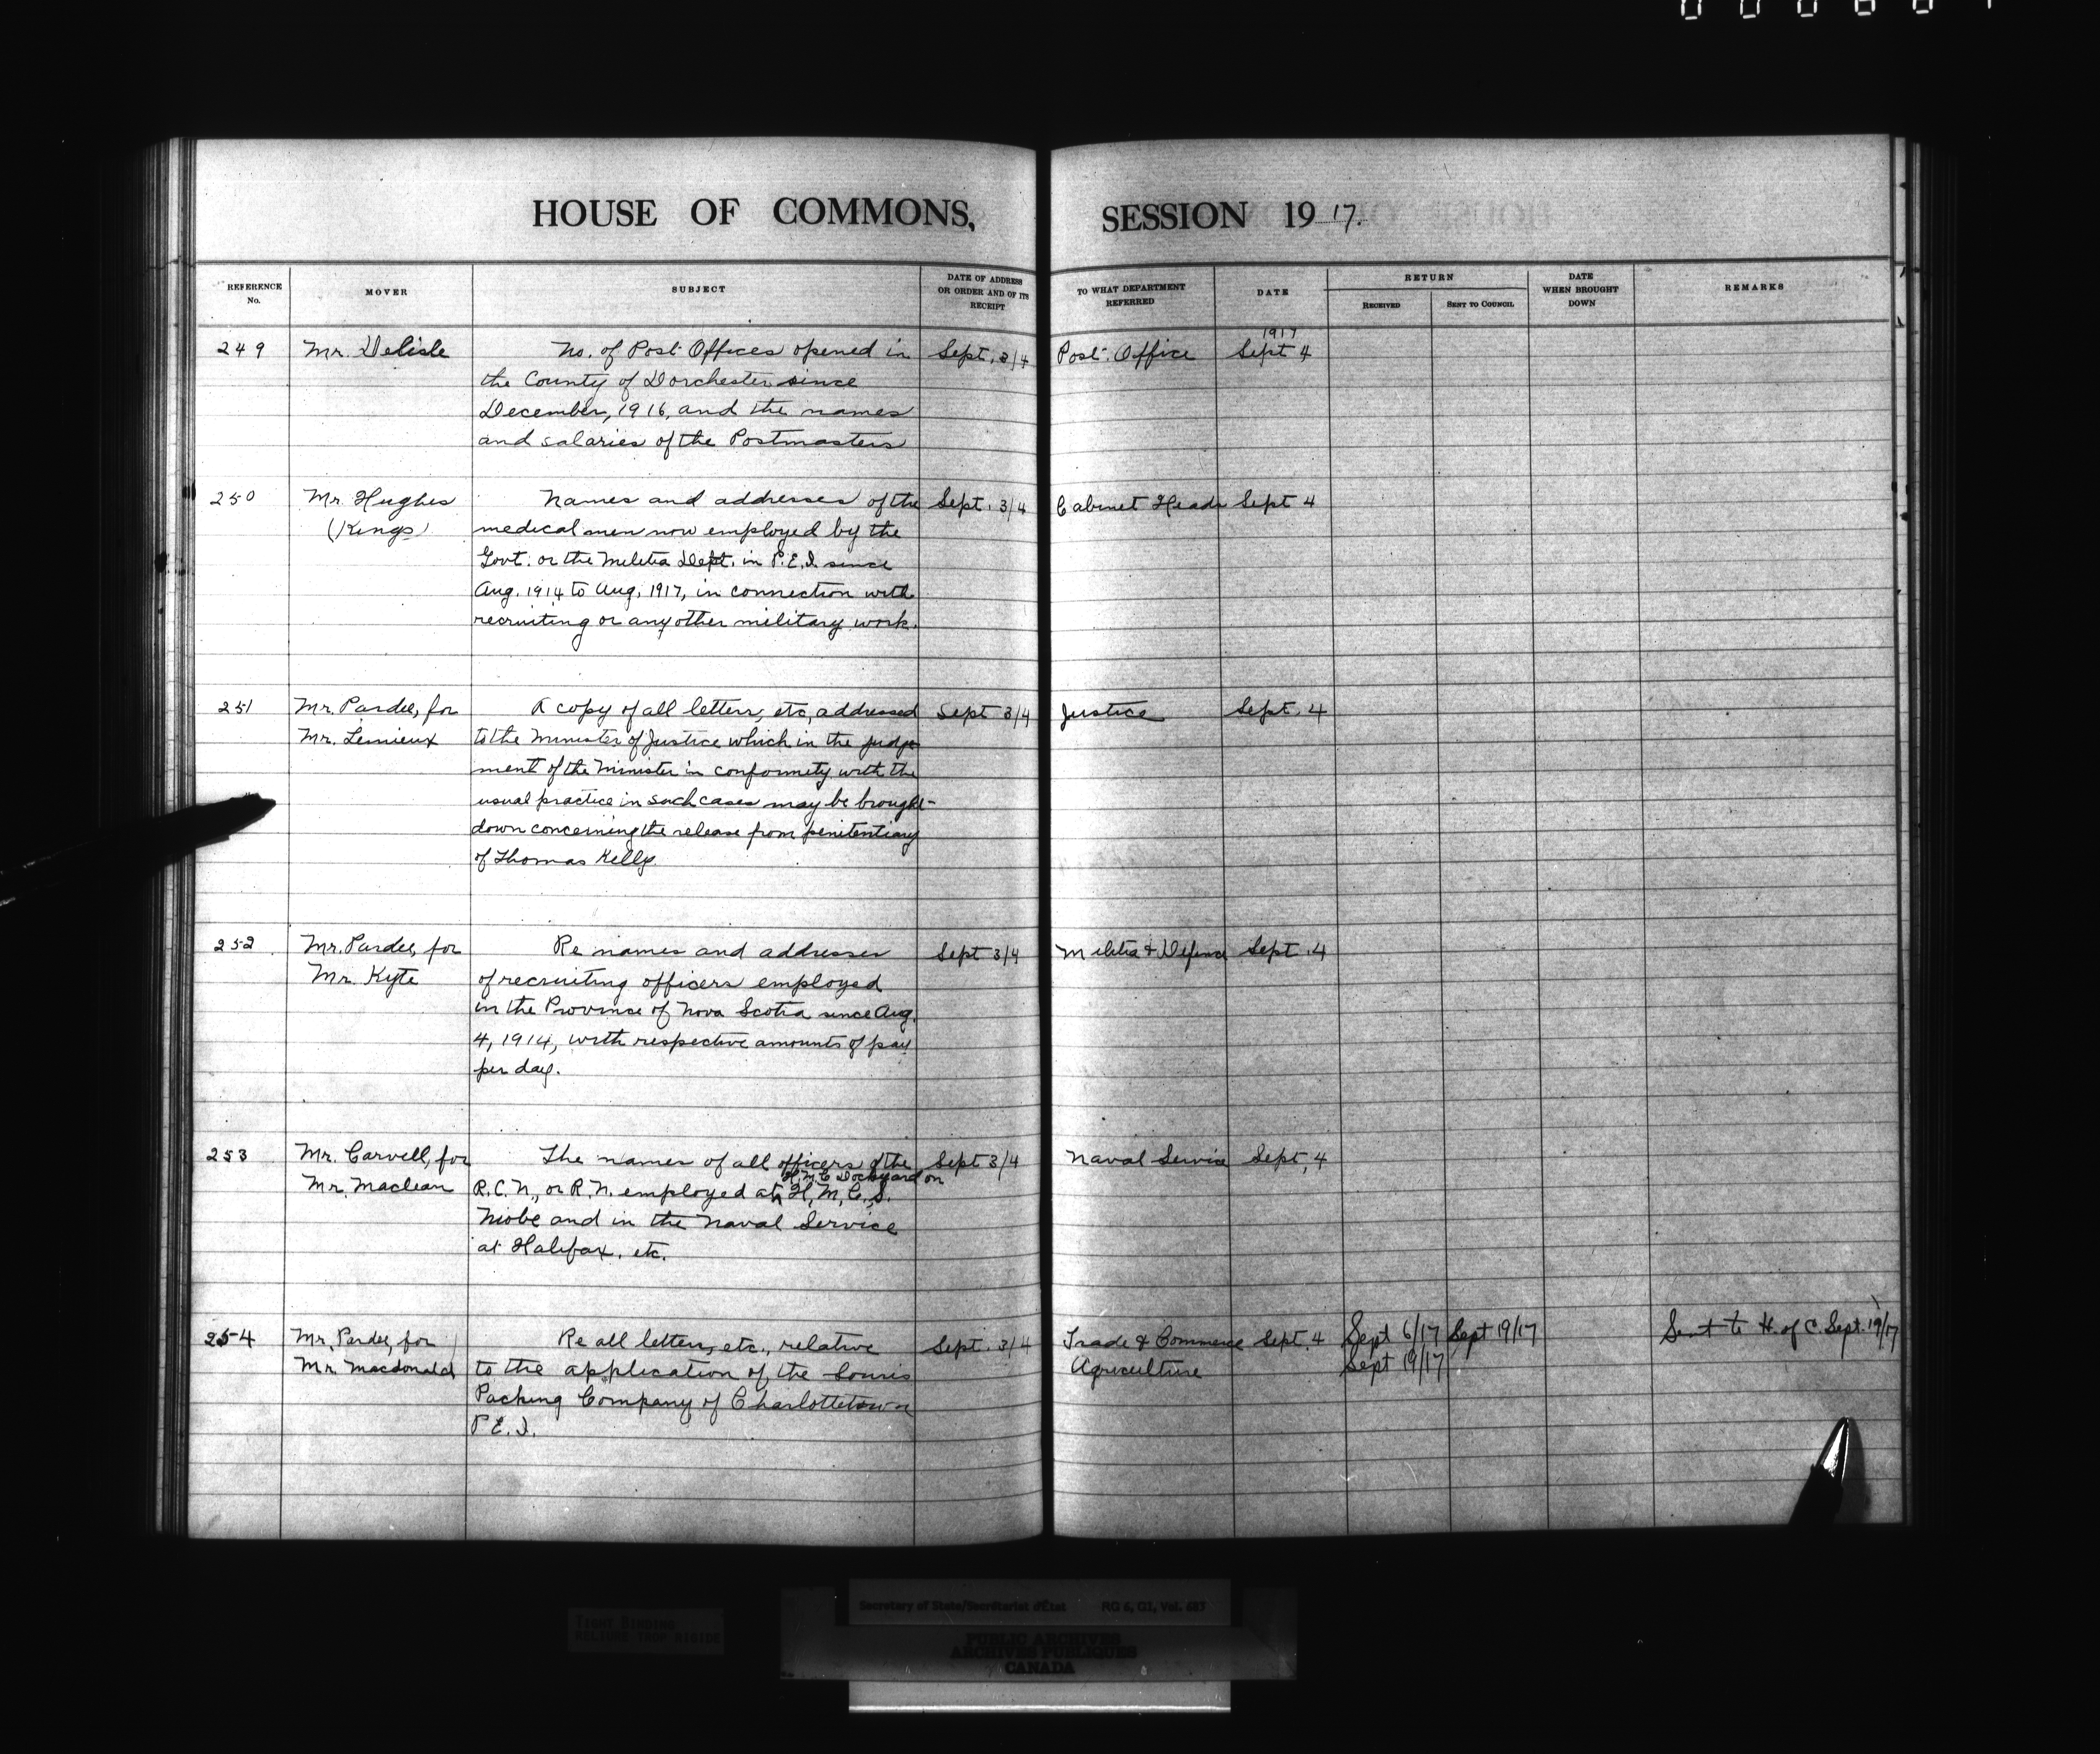 HOUSE OF COMMONS, SESSION 1917.
REFERENCE No.
MOVER
SUBJECT
DATE OF ADDRESS OR ORDER AND OF ITS RECEIPT
TO WHAT DEPARTMENT REFERRED
DATE
RETURN
RECEIVED
SENT TO COUNCIL
DATE WHEN BROUGHT DOWN
REMARKS
1917
249 Mr. Delisle No. of Post Offices opened in Sept. 3/4 Post. Office Sept 4
the County of Dorchester since
December, 1916, and the names
and salaries of the Postmasters
250 Mr. Hughes Names and addresses of the Sept. 3/4 Cabinet Heads Sept 4
(Kings) medical men now employed by the
Govt. or the Militia Dept. in P.E.I. since
Aug. 1914 to Aug. 1917, in connection with
recruiting or any other military work.
251 Mr. Pardee, for A copy of all letters, etc, addressed Sept 3/4 Justice Sept. 4
Mr. Lemieux to the Minister of Justice which in the judge
ment of the Minister in conformity with the
usual practice in such cases may be brought
down concerning the release from penitentiary
of Thomas Kelly.
252 Mr. Pardee, for Re names and addresses Sept 3/4 Militia & Defence Sept. 4
Mr. Kyte of recruiting officers employed
in the Province of Nova Scotia since Aug.
4, 1914, with respective amounts of pay
per day.
253 Mr. Carvell, for The names of all officers of the Sept 3/4 Naval Service Sept. 4
H.M.C Dockyard on
Mr. Maclean R.C.N., or R.N. employed at H.M.C.S.
Niobe and in the Naval Service
at Halifax, etc.
254 Mr. Pardee, for Re all letters, etc., relative Sept. 3/4 Trade & Commerce Sept. 4 Sept 6/17 Sept 19/17 Sent to H. of C. Sept. 19/17
Mr. Macdonald to the application of the Souris Agriculture Sept 19/17
Packing Company of Charlottetown
P.E.I.
TIGHT BINDING
RELIURE TROP RIGIDE
Secretary of State/Secrétariat d'État RG 6, G1, Vol. 687
PUBLIC ARCHIVES
ARCHIVES PUBLIQUES
CANADA